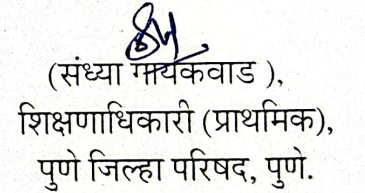 (संध्या गायकवाड ),
शिक्षणाधिकारी (प्राथमिक),
पुणे जिल्हा परिषद, पुणे.